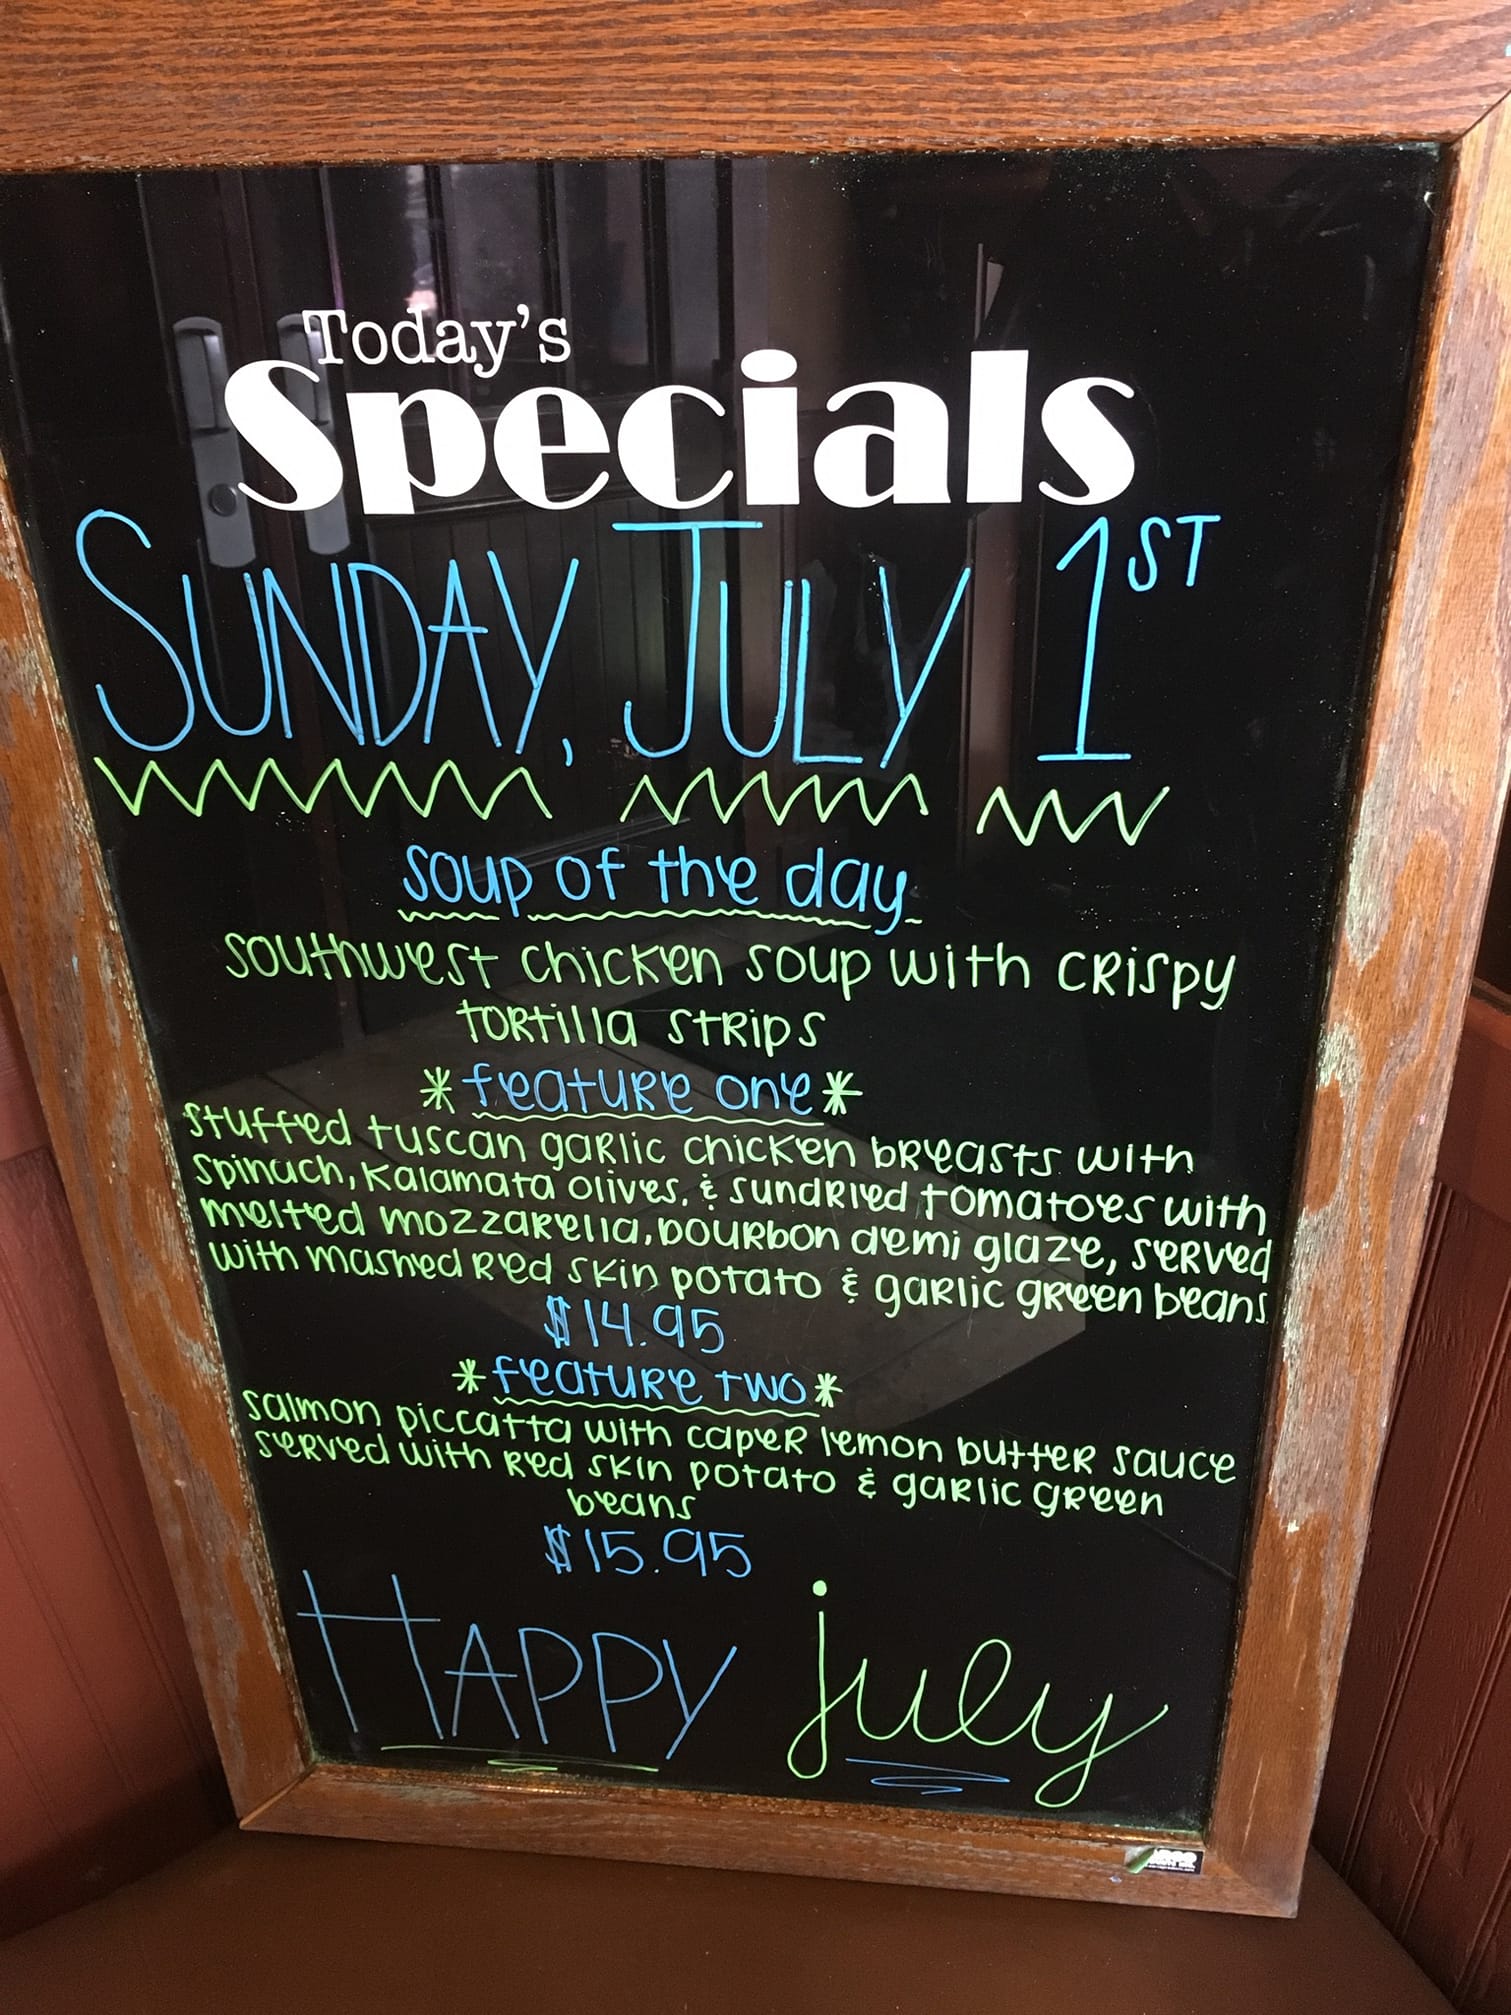 Today's
Specials
SUNDAY, JULY 1ST
soup of the day
southwest chicken soup with crispy
tortilla strips
*feature one*
stuffed tuscan garlic chicken breasts with
spinach, kalamata olives, & sundried tomatoes with
melted mozzarella, bourbon demi glaze, served
with mashed red skin potato & garlic green beans
$14.95
*feature two*
salmon piccatta with caper lemon butter sauce
served with red skin potato & garlic green
beans
$15.95
HAPPY july